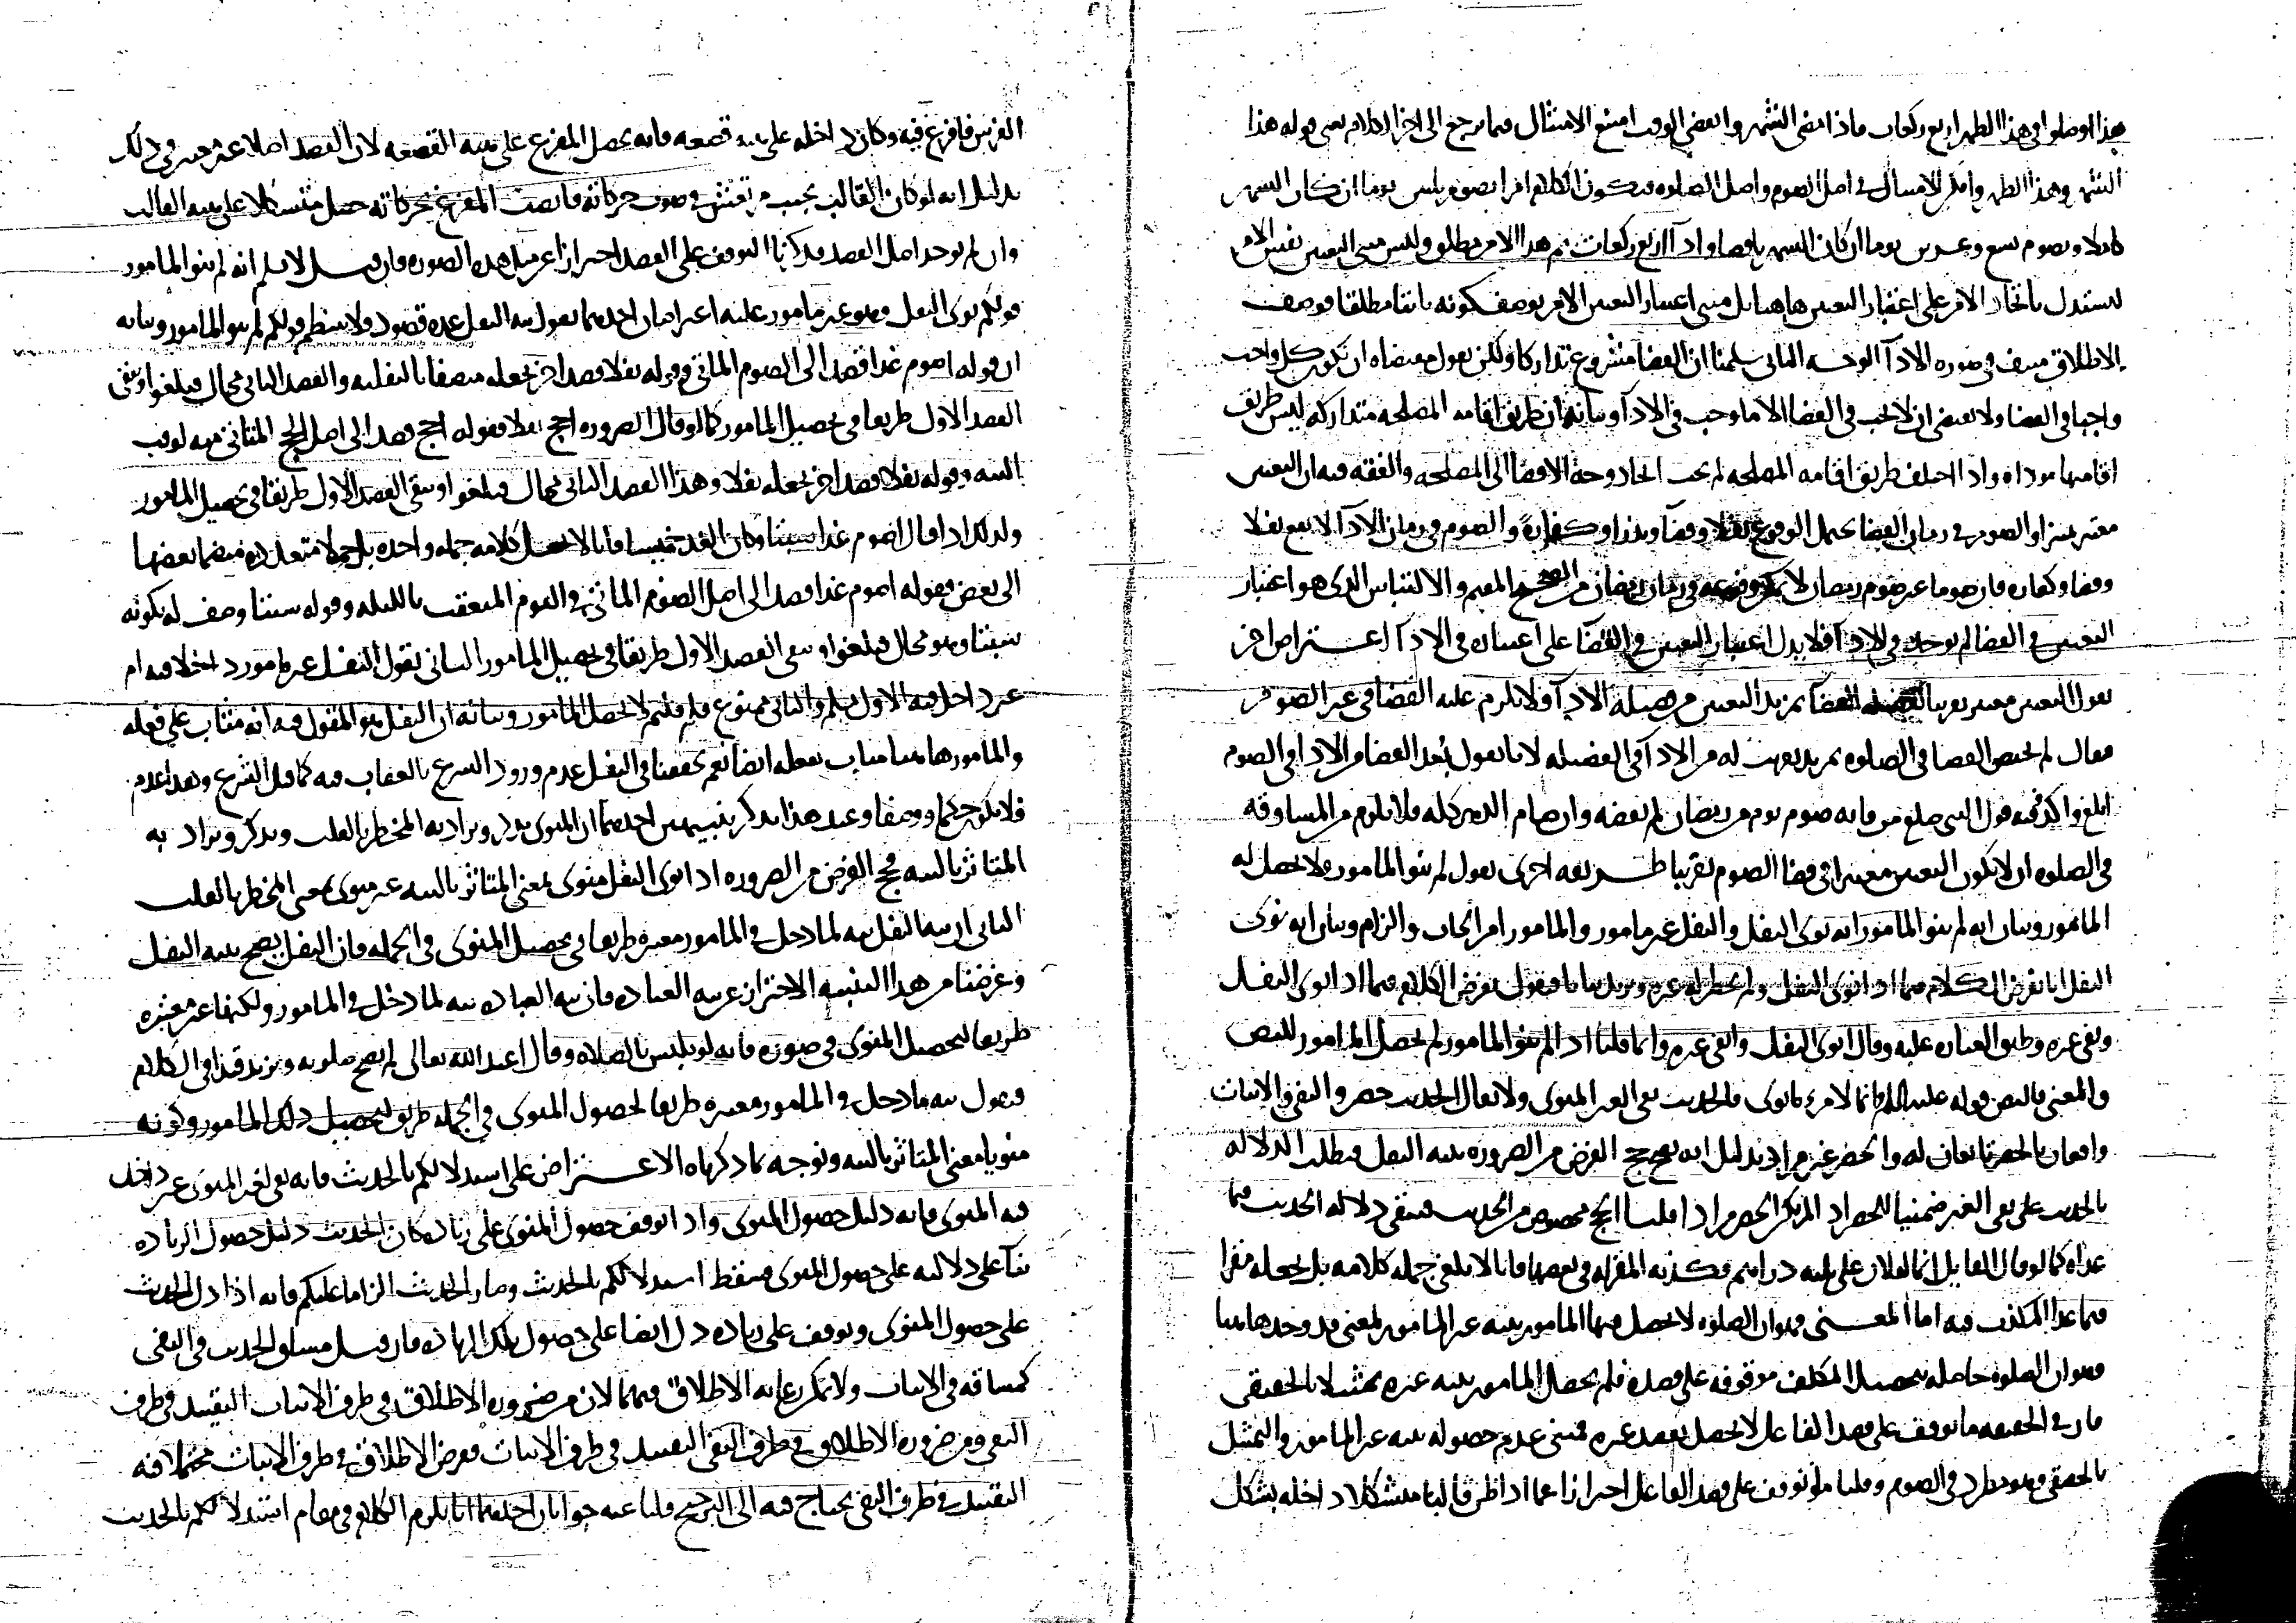 هذا او صلوا في هذا الظهر اربع ركعات فاذا انقضى الشهر وانقضى الوقت امتنع الامتثال فيما يرجع الى اخر الكلام يعني قوله هذا
الشهر وهذا الظهر وامكن الامتثال في اصل الصوم واصل الصلوة فيكون الكلام امرا بصوم ثلثين يوما ان كان الشهر
كاملا وبصوم تسع وعشرين يوما ان كان الشهر ناقصا واداء اربع ركعات ثم هذا الامر مطلق وليس من التعيين نفس الامر
ليستدل باتحاد الامر على اعتبار التعيين هاهنا بل مبنى اعتبار التعيين الامر بوصف كونه باتا مطلقا فوصف
الاطلاق منتف في صورة الاداء الوجه الثاني سلمنا ان القضا مشروع تداركا ولكن نقول مقتضاه ان يكون كل واجب
واجبا في القضا ولا يقتضي ان لا يجب في القضا الا ما وجب في الاداء وبيانه ان طريق اقامة المصلحة متداركة ليس طريق
اقامتها موداة واذا اختلف طريق اقامة المصلحة لم يجب اتحاد وجه الافضا الى المصلحة والفقه فيه ان التعيين
معتبر تمييزا والصوم في زمان القضا يحتمل الوقوع نفلا وقضآ ونذرا وكفارة والصوم في زمان الاداء لا يقع نفلا
وقضا وكفارة فان صوما غير صوم رمضان لا يمكن وقوعه في زمان رمضان من الصحيح المقيم والالتباس الذي هو اعتبار
التعيين في القضا لم يوجد في الاداء فلا يدل اعتبار التعيين في القضآ على اعتباره في الاداء اعتراض اخر
نقول التعيين معتبر تقريبا لفضيلة القضآ بمزيد التعيين من فضيلة الاداء ولا يلزم عليه القضا في غير الصوم
فقال لم يختص القضا في الصلوة بمزيد يقرب له من الاداء في الفضيلة لانا نقول بعد القضا من الاداء في الصوم
ابلغ واكد فيه قول النبي صلع من فاته صوم يوم من رمضان لم يقضه وان صام الدهر كله فلا يلزم من المساوقة
في الصلوة ان لا يكون التعيين معتبرا في قضا الصوم تقريبا طريقة اخرى نقول لم ينو المامور فلا يحصل له
المامور وبيان انه لم ينو المامور انه نوى النفل والنفل غير مامور والمامور امر ايجاب والزام وبيان انه نوى
النفل انا نفرض الكلام فيما اذا نوى النفل ولم يخطر له غيره ونزيد بيانا فنقول نفرض الكلام فيما اذا نوى النفل
ونفى غيره وطبق العبارة عليه وقال انوى النفل وانفى غيره وانما قلنا اذا لم ينو المامور لم يحصل المامور للنص
والمعنى فالنص قوله عليه السلم انما لامرء ما نوى فالحديث نفى الغير المنوى ولا يقال الحديث حصر والنفي والاثبات
بالحديث على نفي الغير ضمنيا للحصر اذ لم يكن الحصر مرادا قلنا الحج مخصوص من الحديث فتبقى دلالة الحديث فيما
عداه كما لو قال القايل انما لفلان علي ثلثة دراهم فكذبه المقر له في بعضها فانا لا نلغي جملة كلامه بل نجعله مقرا
فيما عدا المكذب فيه اما المعنى فهو ان الصلوة لا يحصل فيها المامور بنية غير المامور لمعنى قد وجد هاهنا
وهو ان الصلوة حاصلة بتحصيل المكلف موقوفة على قصده فلم يحصل المامور بنية غيره تمثيلا بالحقيقي
فان في الحقيقة ما توقف على قصد الفاعل لا يحصل بقصد غيره فينبغي عدم حصوله بنية غير المامور والتمثيل
بالحقيقي وهو مطرد في الصوم وقلنا ما توقف على قصد الفاعل احترازا عما اذا ظن قالبا متشكلا داخله بشكل
الفرس فافرغ فيه وكان داخله على هيئة قصعة فانه يحصل المفرغ على هيئة القصعة لان القصد اصلا غير معتبر في ذلك
وان لم يوجد اصل القصد فذكرنا التوقف على القصد احترازا عن مثل هذه الصورة فان قيل لا نسلم انه لم ينو المامور
قولكم نوى النفل وهو غير مامور عليه اعتراضان احدهما نقول نية النفل عدة قصود ولا ينتظم قولكم لم ينو المامور وبيانه
ان قوله اصوم غدا قصد الى الصوم الماتي وقوله نفلا قصد اخر يجعله متصفا بالنفلية والقصد الثاني محال فيلغوا ويبقى
القصد الاول طريقا في تحصيل المامور كما لو قال الصرورة احج نفلا فقوله احج قصد الى اصل الحج الماتي فيه لوقت
النية وقوله نفلا قصد اخر يجعله نفلا وهذا القصد الثاني محال فيلغوا ويبقى القصد الاول طريقا في تحصيل المامور
ولذلك اذا قال اصوم غدا سبتا وكان الغد خميسا فانا لا نجعل كلامه جملة واحدة بل جملا متعددة منضما بعضها
الى بعض فقوله اصوم غدا قصد الى اصل الصوم الماتي في اليوم المتعقب بالليلة وقوله سبتا وصف له بكونه
سبتا وهو محال فيلغوا ويبقى القصد الاول طريقا في تحصيل المامور الثاني نقول النفل غير مامور داخلا فيه ام
غير داخل فيه الاول مسلم والثاني ممنوع فلم قلتم لا يحصل المامور وبيانه ان النفل هو المقول فيه انه مثاب على فعله
والمامور هاهنا مثاب بفعله ايضا نعم تحققنا في النفل عدم ورود الشرع بالعقاب فيه كما قبل الشرع وهذا عدم
فلا يكون حكما ووصفا وعند هذا نذكر تنبيهين احدهما ان المنوى يذكر ويراد به المخطر بالقلب ويذكر ويراد به
المتاثر بالنية فحج الفرض من الصرورة اذا نوى النفل منوى بمعنى المتاثر بالنية غير منوى بمعنى المخطر بالقلب
الثاني ان نية النفل نية لما دخل في المامور معتبرة طريقا في تحصيل المنوى في الجملة فان النفل يصح بنية النفل
وغرضنا من هذا التنبيه الاحتراز عن نية العبادة فان نية العبادة نية لما دخل في المامور ولكنها غير معتبرة
طريقا لتحصيل المنوى في صورة فانه لو تلبس بالصلاة وقال اعبد الله تعالى لم يصح صلوته ونزيد قيدا في الكلام
فنقول نية ما دخل في المامور معتبرة طريقا لحصول المنوى في الجملة طريق لتحصيل ذلك المامور وكونه
منويا بمعنى المتاثر بالنية ونوجه ما ذكرناه الاعتراض على استدلالكم بالحديث فانه نفى لغير المنوى غير داخل
فيه المنوى فانه دليل حصول المنوى واذا توقف حصول المنوى على زيادة كان الحديث دليل حصول الزيادة
بنآ على دلالته على حصول المنوى فيسقط استدلالكم بالحديث وصار الحديث الزاما عليكم فانه اذا دل الحديث
على حصول المنوى وتوقف على زيادة دل ايضا على حصول تلك الزيادة فان قيل مساق الحديث في النفي
كمساقه في الاثبات ولا يمكن رعاية الاطلاق فيهما لان من ضرورة الاطلاق في طرف الاثبات التقييد في طرف
النفي ومن ضرورة الاطلاق في طرف النفي التقييد في طرف الاثبات فعرض الاطلاق في طرف الاثبات محتملا فيه
التقييد في طرف النفي يحتاج فيه الى الترجيح قلنا عنه جوابان احدهما انا نلزم الكلام في مقام استدلالكم بالحديث